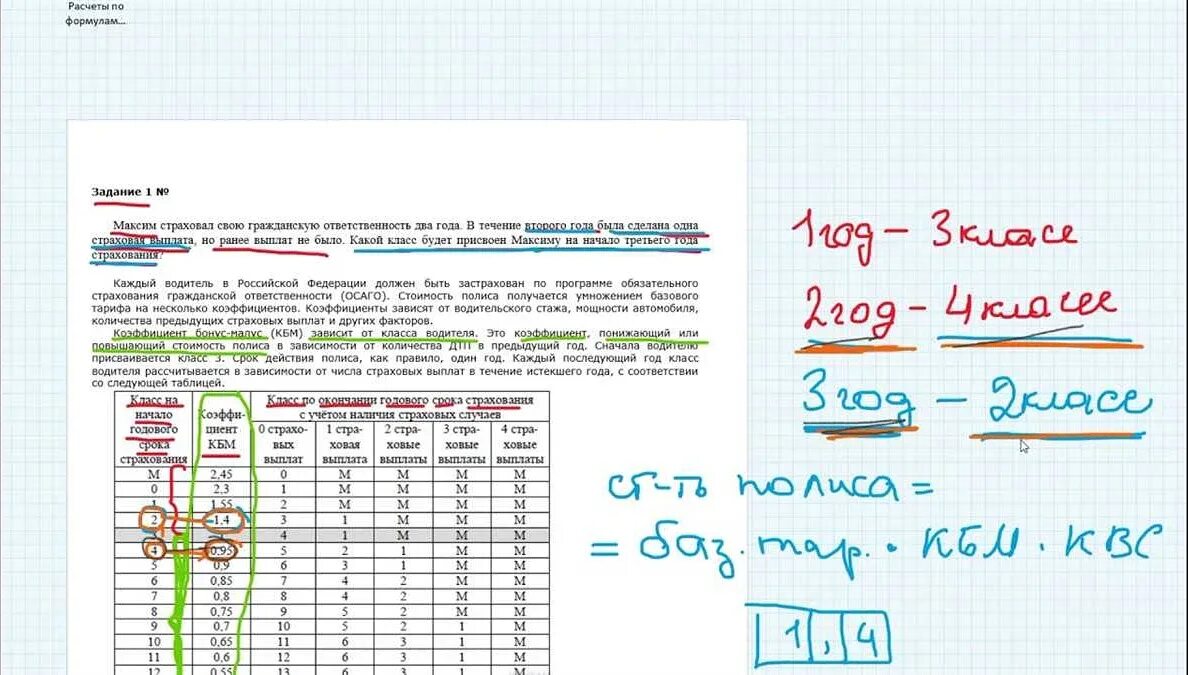 Расчеты по
формулам...
Задание 1 №
Максим страховал свою гражданскую ответственность два года. В течение второго года была сделана одна
страховая выплата, но ранее выплат не было. Какой класс будет присвоен Максиму на начало третьего года
страхования?
Каждый водитель в Российской Федерации должен быть застрахован по программе обязательного
страхования гражданской ответственности (ОСАГО). Стоимость полиса получается умножением базового
тарифа на несколько коэффициентов. Коэффициенты зависят от водительского стажа, мощности автомобиля,
количества предыдущих страховых выплат и других факторов.
Коэффициент бонус-малус (КБМ) зависит от класса водителя. Это коэффициент, понижающий или
повышающий стоимость полиса в зависимости от количества ДТП в предыдущий год. Сначала водителю
присваивается класс 3. Срок действия полиса, как правило, один год. Каждый последующий год класс
водителя рассчитывается в зависимости от числа страховых выплат в течение истекшего года, с соответствии
со следующей таблицей.
Класс на начало годового срока страхования
Коэффи-циент КБМ
Класс по окончании годового срока страхования
с учётом наличия страховых случаев
0 страхо-вых выплат
1 стра-ховая выплата
2 стра-ховые выплаты
3 стра-ховые выплаты
4 стра-ховые выплаты
М 2,45 0 М М М М
0 2,3 1 М М М М
1 1,55 2 М М М М
2 1,4 3 1 М М М
4 1 М М М
4 0,95 5 2 1 М М
5 0,9 6 3 1 М М
6 0,85 7 4 2 М М
7 0,8 8 4 2 М М
8 0,75 9 5 2 М М
9 0,7 10 5 2 1 М
10 0,65 11 6 3 1 М
11 0,6 12 6 3 1 М
12 0,55 13 6 3 1 М
1 год – 3 класс
2 год – 4 класс
3 год – 2 класс
ст-ть полиса =
= баз. тар. · КБМ · КВС
1,4